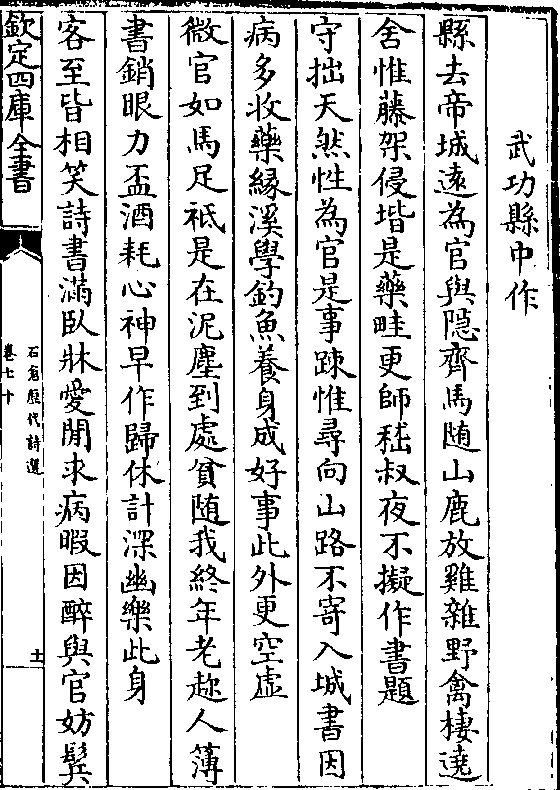 武功縣中作
縣去帝城遠為官與隐齊馬随山鹿放雞雜野禽棲遶
舍惟藤架侵堦是藥畦更師嵇叔夜不擬作書題
守拙天然性為官是事踈惟尋向山路不寄入城書因
病多收藥緣溪學釣魚養身成好事此外更空虚
微官如馬足祗是在泥塵到處貧随我終年老趂人簿
書銷眼力盃酒耗心神早作歸休計深幽樂此身
客至皆相笑詩書滿臥牀愛閒求病暇因醉與官妨鬂
欽定四庫全書
石倉歷代詩選
卷七十
十一